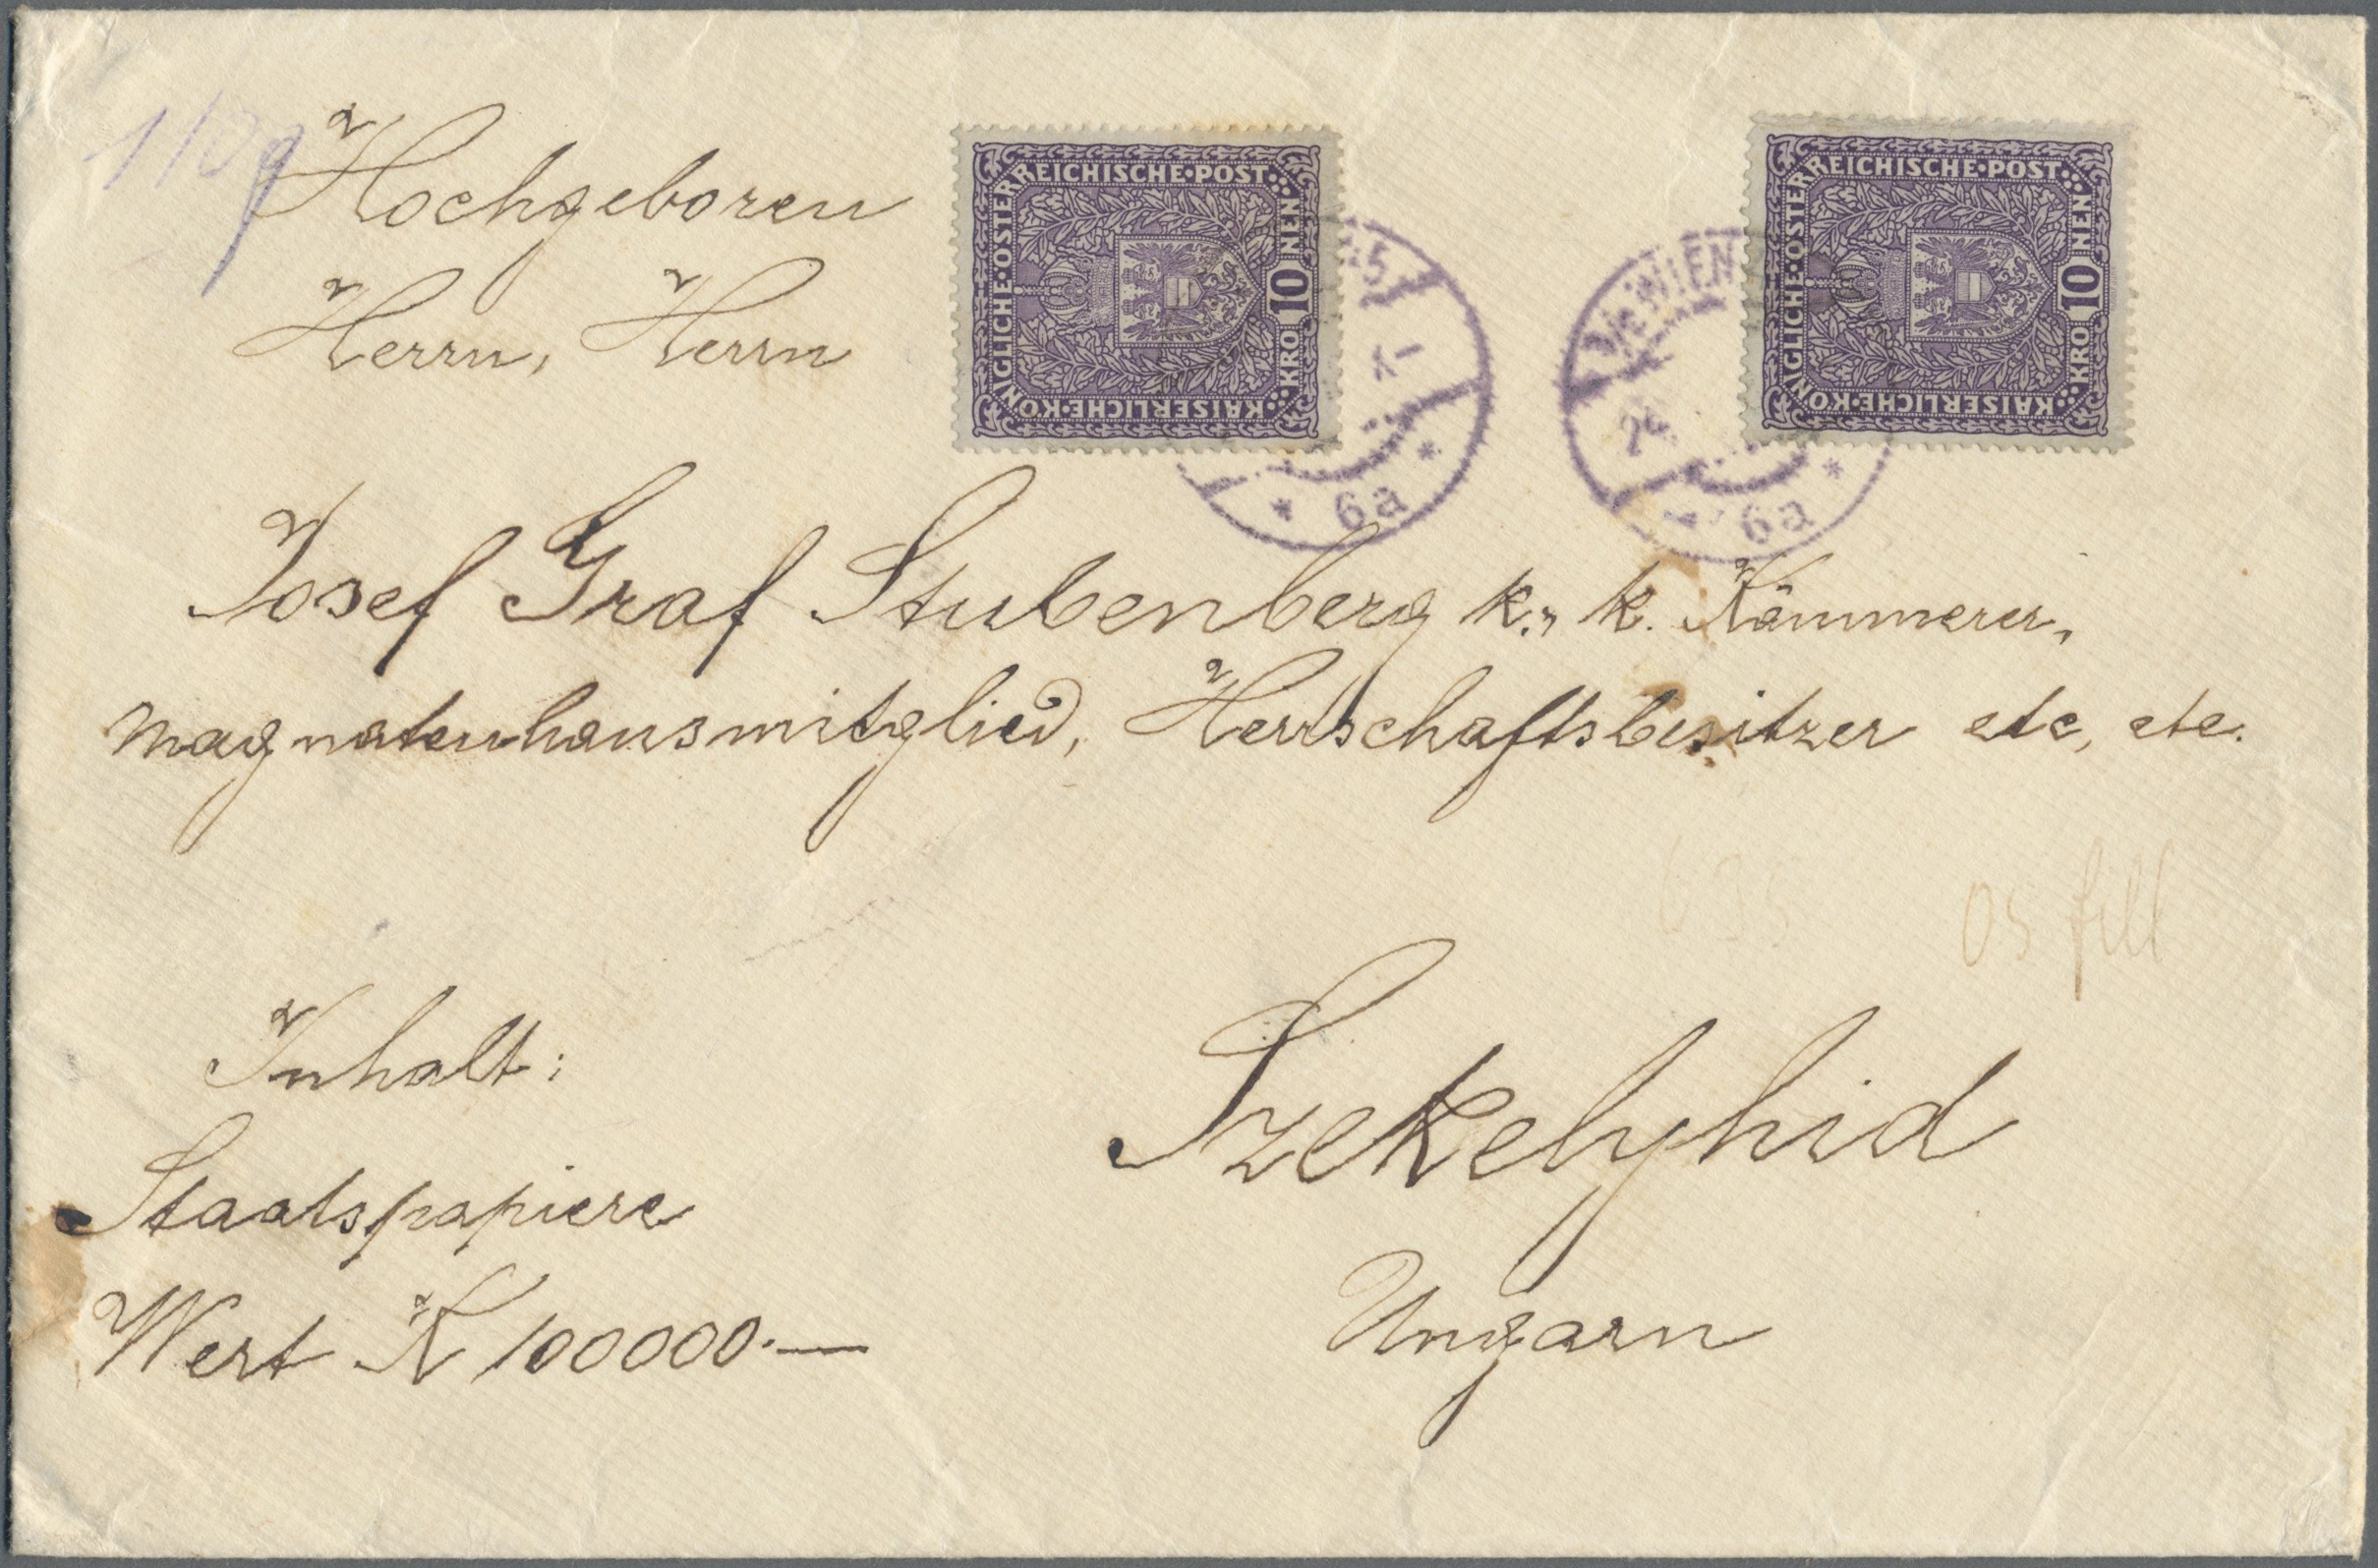 110g
Hochgeboren
Herrn, Herrn
KAISERLICHE·KÖNIGLICHE·ÖSTERREICHISCHE·POST
10 KRONEN
KAISERLICHE·KÖNIGLICHE·ÖSTERREICHISCHE·POST
10 KRONEN
* 6a *
WIEN
6a *
Josef Graf Stubenberg k. k. Kämmerer,
Magnatenhausmitglied, Herrschaftsbesitzer etc, etc.
Inhalt:
Staatspapiere
Wert K 100000.—
Szekelyhid
Ungarn